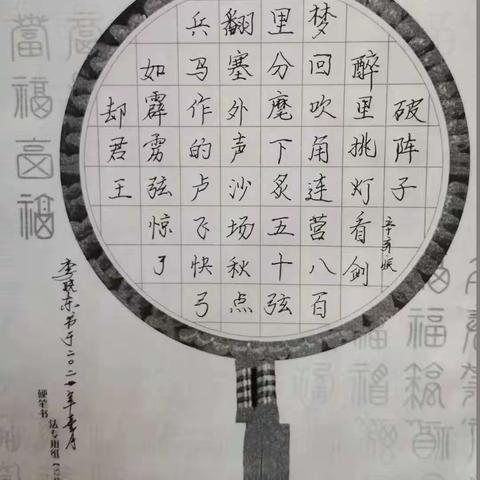 破阵子
辛弃疾
醉里挑灯看剑
梦回吹角连营八百
里分麾下炙五十弦
翻塞外声沙场秋点
兵马作的卢飞快弓
如霹雳弦惊了
却君王
书于二〇二
硬笔书
法专用